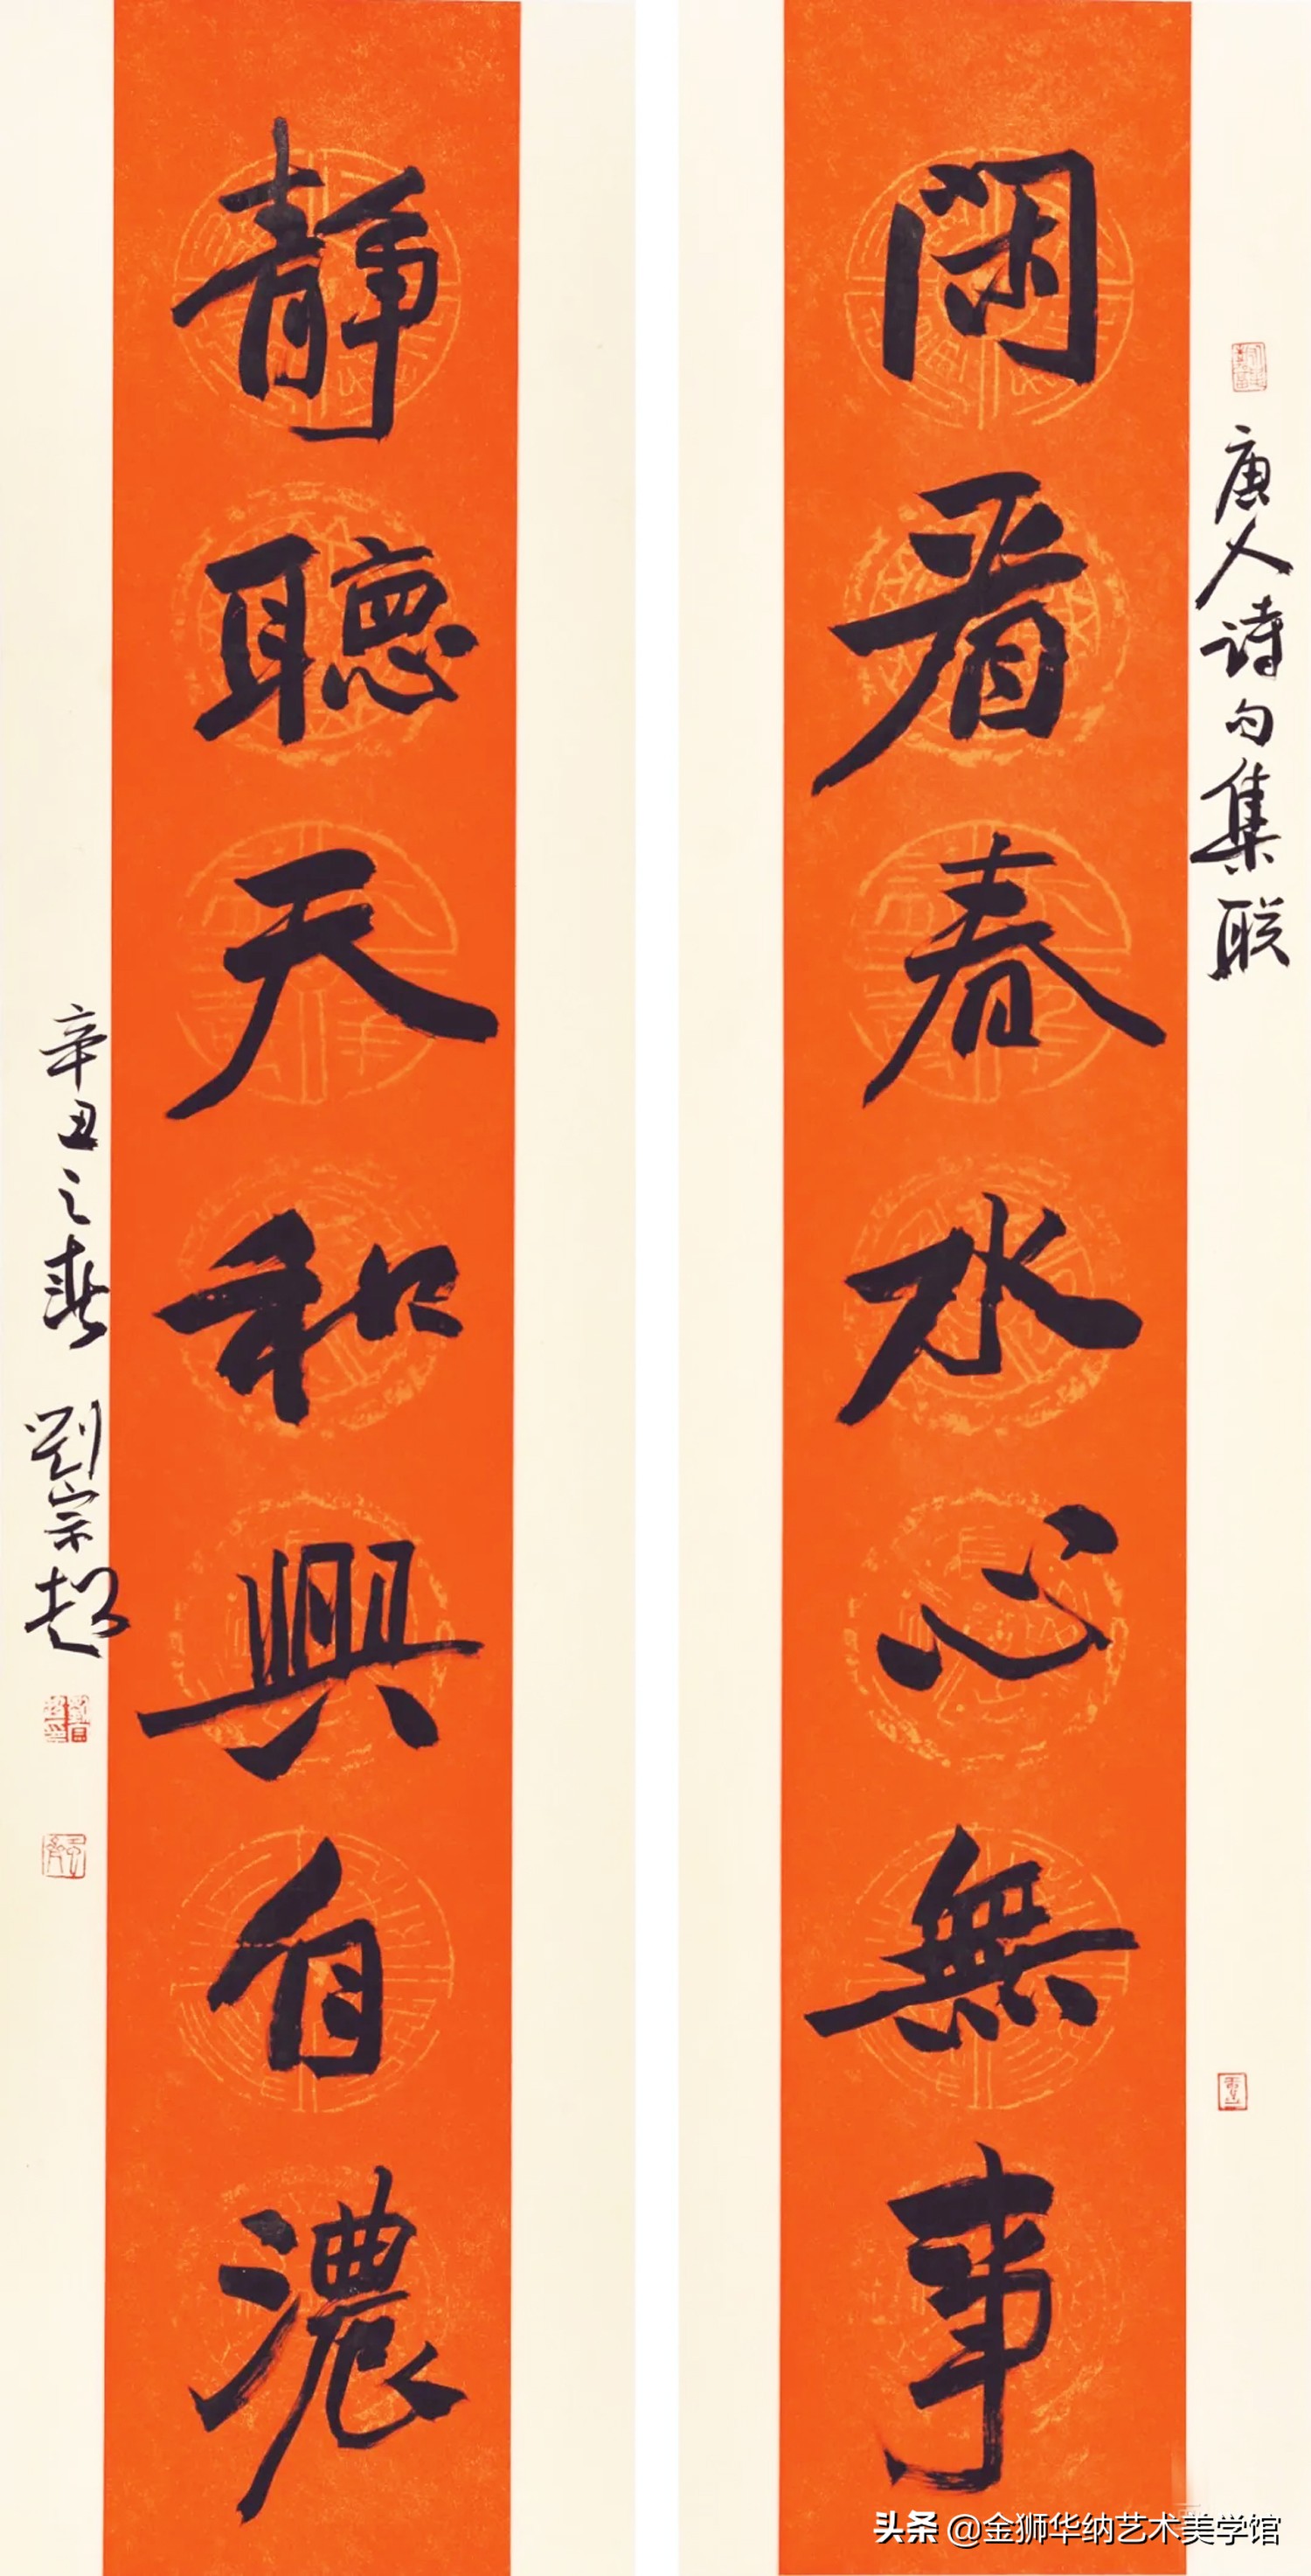 唐人诗句集联
閑看春水心無事
靜聽天和興自濃
辛丑之春 劉宗超
头条 @金狮华纳艺术美学馆